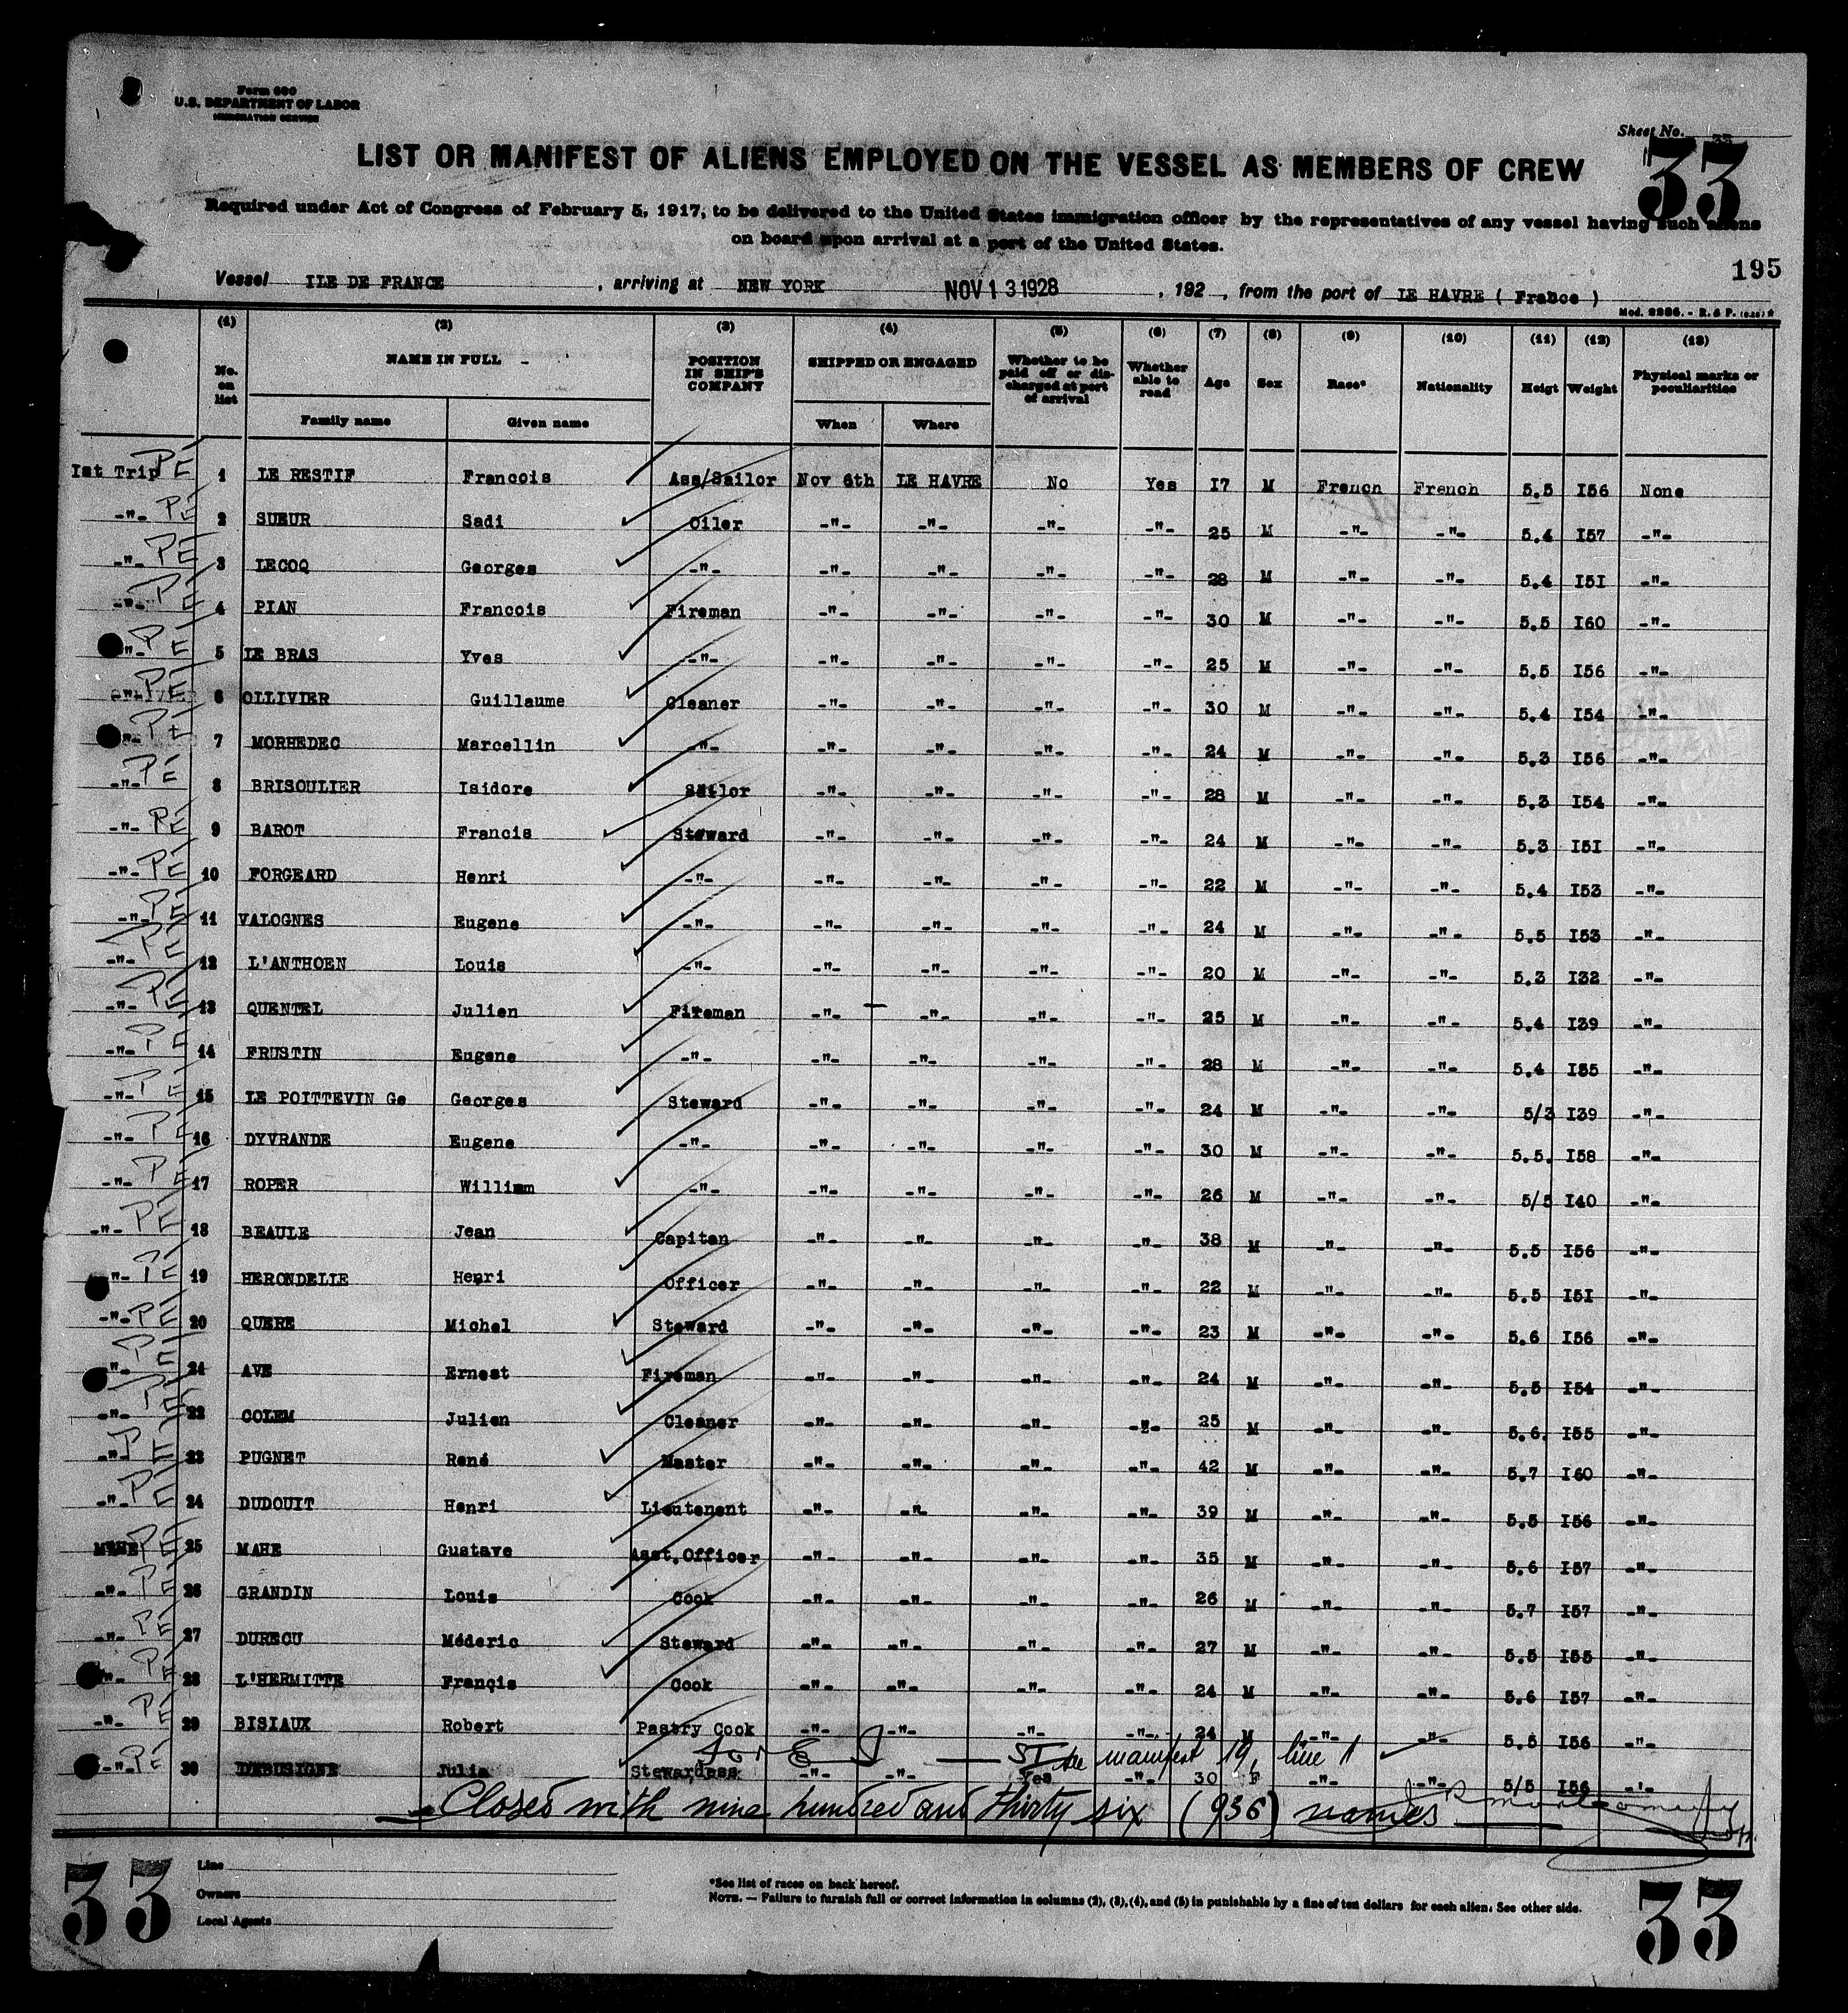 Form 680
U.S. DEPARTMENT OF LABOR
IMMIGRATION SERVICE
Sheet No. 33
33
LIST OR MANIFEST OF ALIENS EMPLOYED ON THE VESSEL AS MEMBERS OF CREW
Required under Act of Congress of February 5, 1917, to be delivered to the United States immigration officer by the representatives of any vessel having such aliens
on board upon arrival at a port of the United States.
195
Vessel ILE DE FRANCE, arriving at NEW YORK NOV 13 1928, 192 , from the port of LE HAVRE ( France )
Mod. 2286. - R. & P.
(1) (2) (3) (4) (5) (6) (7) (8) (9) (10) (11) (12) (13)
No. on list NAME IN FULL POSITION IN SHIP'S COMPANY SHIPPED OR ENGAGED Whether to be paid off or discharged at port of arrival Whether able to read Age Sex Race* Nationality Heigt Weight Physical marks or peculiarities
Family name Given name When Where
Ist Trip PE 1 LE RESTIF Francois Ass/Sailor Nov 6th LE HAVRE No Yes I7 M French French 5.5 I56 None
-"- PE 2 SUEUR Sadi Oiler -"- -"- -"- -"- 25 M -"- -"- 5.4 I57 -"-
-"- PE 3 LECOQ Georges -"- -"- -"- -"- -"- 28 M -"- -"- 5.4 I5I -"-
-"- PE 4 PIAN Francois Fireman -"- -"- -"- -"- 30 M -"- -"- 5.5 I60 -"-
-"- PE 5 LE BRAS Yves -"- -"- -"- -"- -"- 25 M -"- -"- 5.5 I56 -"-
-"- PE 6 OLLIVIER Guillaume Cleaner -"- -"- -"- -"- 30 M -"- -"- 5.4 I54 -"-
-"- PE 7 MORHEDEC Marcellin -"- -"- -"- -"- -"- 24 M -"- -"- 5.3 I56 -"-
-"- PE 8 BRISOULIER Isidore Sailor -"- -"- -"- -"- 28 M -"- -"- 5.3 I54 -"-
-"- PE 9 BAROT Francis Steward -"- -"- -"- -"- 24 M -"- -"- 5.3 I5I -"-
-"- PE 10 FORGEARD Henri -"- -"- -"- -"- -"- 22 M -"- -"- 5.4 I53 -"-
-"- PE 11 VALOGNES Eugene -"- -"- -"- -"- -"- 24 M -"- -"- 5.5 I53 -"-
-"- PE 12 L'ANTHOEN Louis -"- -"- -"- -"- -"- 20 M -"- -"- 5.3 I32 -"-
-"- PE 13 QUENTEL Julien Fireman -"- -"- -"- -"- 25 M -"- -"- 5.4 I39 -"-
-"- PE 14 FRUSTIN Eugene -"- -"- -"- -"- -"- 28 M -"- -"- 5.4 I35 -"-
-"- PE 15 LE POITTEVIN Ge Georges Steward -"- -"- -"- -"- 24 M -"- -"- 5/3 I39 -"-
-"- PE 16 DYVRANDE Eugene -"- -"- -"- -"- -"- 30 M -"- -"- 5.5. I58 -"-
-"- PE 17 ROPER William -"- -"- -"- -"- -"- 26 M -"- -"- 5/5 I40 -"-
-"- PE 18 BEAULE Jean Capitan -"- -"- -"- -"- 38 M -"- -"- 5.5 I56 -"-
-"- PE 19 HERONDELLE Henri Officer -"- -"- -"- -"- 22 M -"- -"- 5.5 I5I -"-
-"- PE 20 QUERE Michel Steward -"- -"- -"- -"- 23 M -"- -"- 5.6 I56 -"-
-"- PE 21 AVE Ernest Fireman -"- -"- -"- -"- 24 M -"- -"- 5.5 I54 -"-
-"- PE 22 COLEM Julien Cleaner -"- -"- -"- -"- 25 M -"- -"- 5.6. I55 -"-
-"- PE 23 PUGNET René Master -"- -"- -"- -"- 42 M -"- -"- 5.7 I60 -"-
-"- PE 24 DUDOUIT Henri Lieutenent -"- -"- -"- -"- 39 M -"- -"- 5.5 I56 -"-
PE 25 MAHE Gustave Asst.Officer -"- -"- -"- -"- 35 M -"- -"- 5.6 I57 -"-
-"- PE 26 GRANDIN Louis Cook -"- -"- -"- -"- 26 M -"- -"- 5.7 I57 -"-
-"- PE 27 DURECU Méderic Steward -"- -"- -"- -"- 27 M -"- -"- 5.5 I55 -"-
-"- PE 28 L'HERMITTE Françis Cook -"- -"- -"- -"- 24 M -"- -"- 5.6 I57 -"-
-"- PE 29 BISIAUX Robert Pastry Cook -"- -"- -"- -"- 24 M -"- -"- 5.5 I56 -"-
see manifest 19, line 1
-"- PE 30 Julia Stewardess -"- -"- Yes -"- 30 F -"- -"- 5/5 I56 -"-
Closed with nine hundred and thirty six (936) names
33
Line
Owners
Local Agents
*See list of races on back hereof.
NOTE. — Failure to furnish full or correct information in columns (2), (3), (4), and (5) in punishable by a fine of ten dollars for each alien. See other side.
33